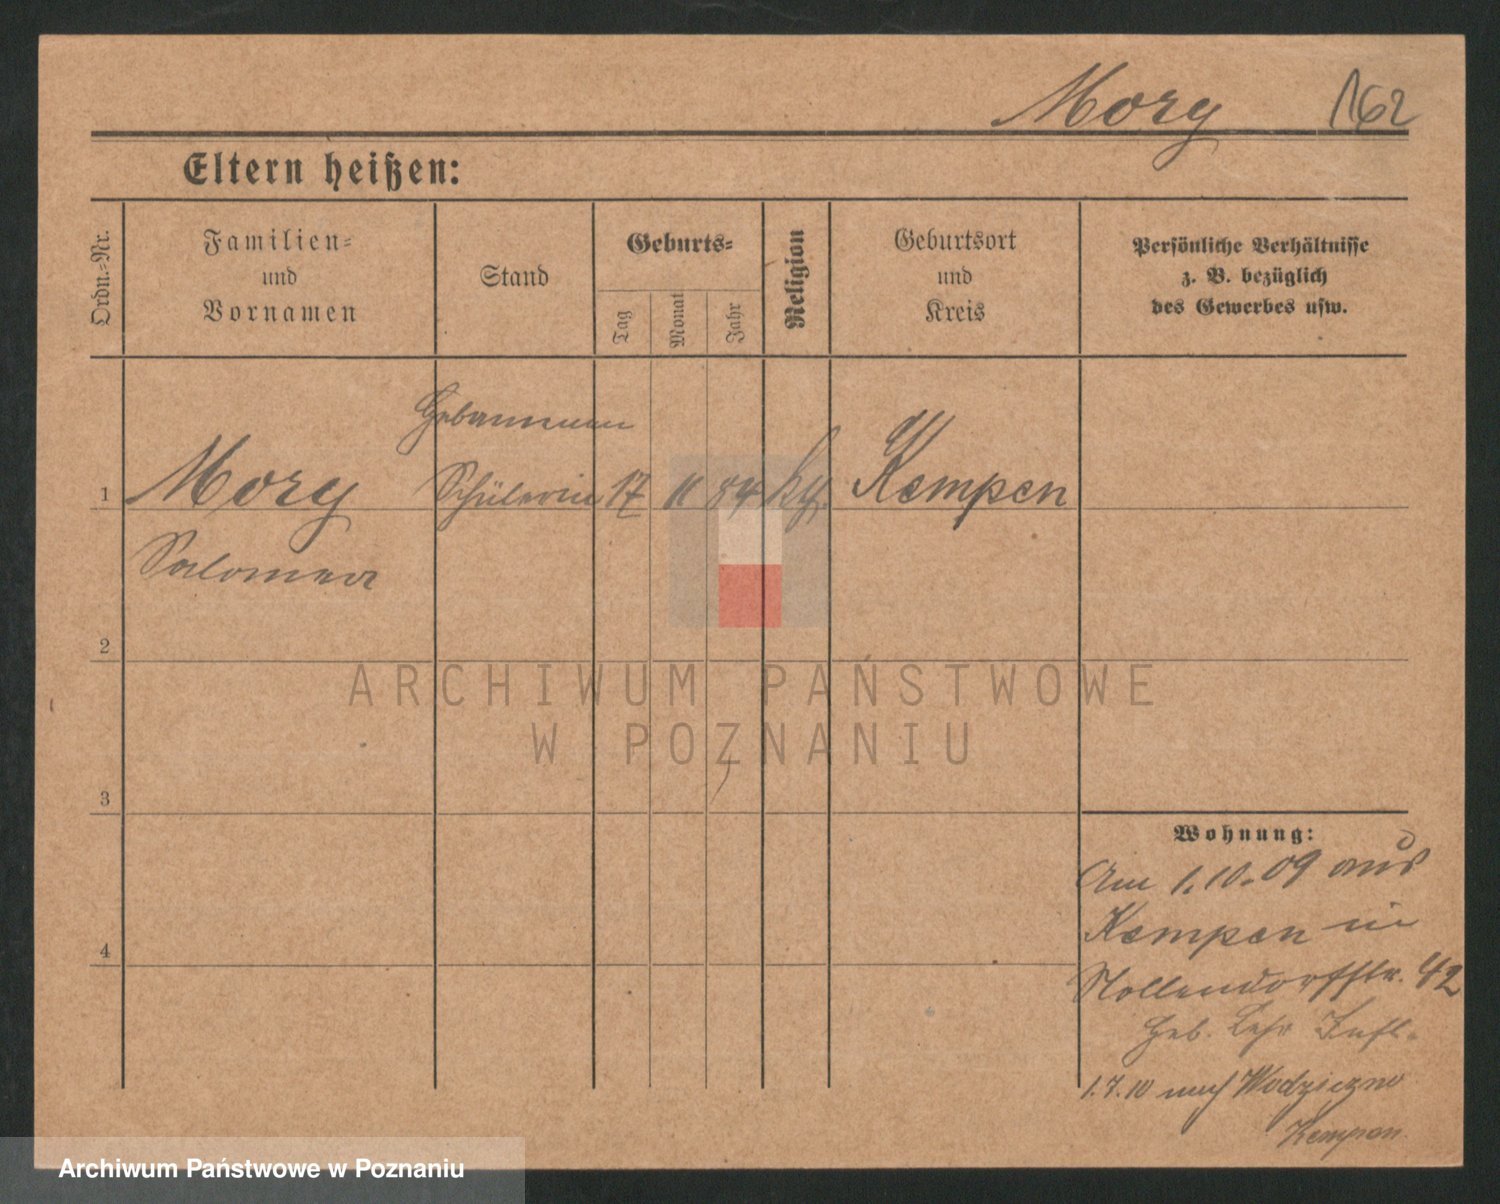 Mory 162
Eltern heißen:
Ordn.=Nr.
Familien=
und
Vornamen
Stand
Geburts=
Tag
Monat
Jahr
Religion
Geburtsort
und
Kreis
Persönliche Verhältnisse
z. B. bezüglich
des Gewerbes usw.
Hebammen
1 Mory Schülerin 17 11 84 Kempen
Salomea
2
3
4
Wohnung:
Am 1.10.09 aus
Kempen in
Nollendorfstr. 42
Heb. Lehr Inst.
1.7.10 nach Wodziczno
Kempen
ARCHIWUM PAŃSTWOWE
W POZNANIU
Archiwum Państwowe w Poznaniu